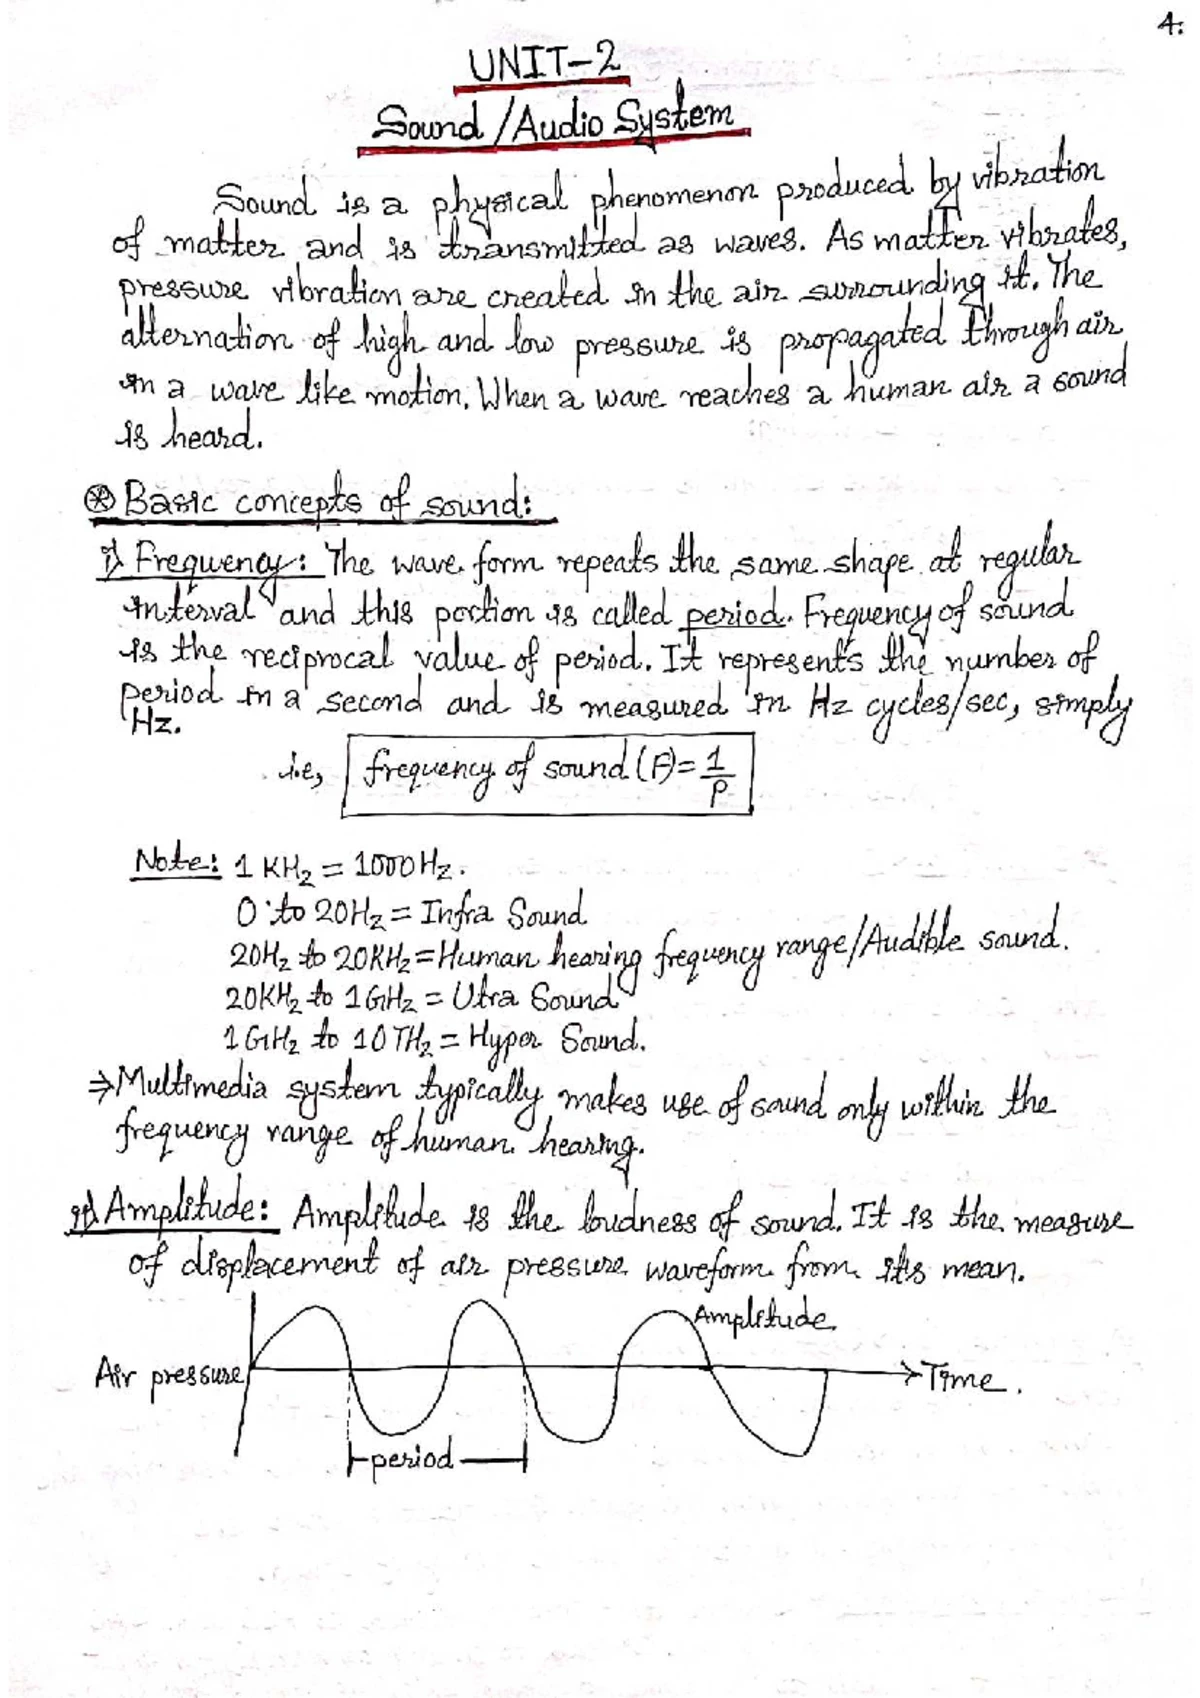 4.
UNIT-2
Sound/Audio System
Sound is a physical phenomenon produced by vibration
of matter and is transmitted as waves. As matter vibrates,
pressure vibration are created in the air surrounding it. The
alternation of high and low pressure is propagated through air
in a wave like motion. When a wave reaches a human air a sound
is heard.
⊛ Basic concepts of sound:
i) Frequency: The wave form repeats the same shape at regular
interval and this portion is called period. Frequency of sound
is the reciprocal value of period. It represents the number of
period in a second and is measured in Hz cycles/sec, simply
Hz.
i.e, frequency of sound (F) = 1/P
Note: 1 KHz = 1000Hz.
0 to 20Hz = Infra Sound
20Hz to 20KHz = Human hearing frequency range/Audible sound.
20KHz to 1GHz = Utra Sound
1GHz to 10THz = Hyper Sound.
⇒ Multimedia system typically makes use of sound only within the
frequency range of human hearing.
ii) Amplitude: Amplitude is the loudness of sound. It is the measure
of displacement of air pressure waveform from its mean.
Amplitude
Air pressure
Time.
period